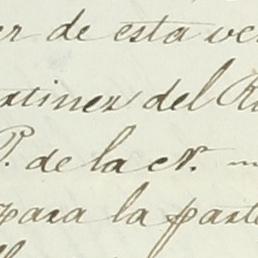 er de esta vec
artinez del R
P. de la N.
para la parte